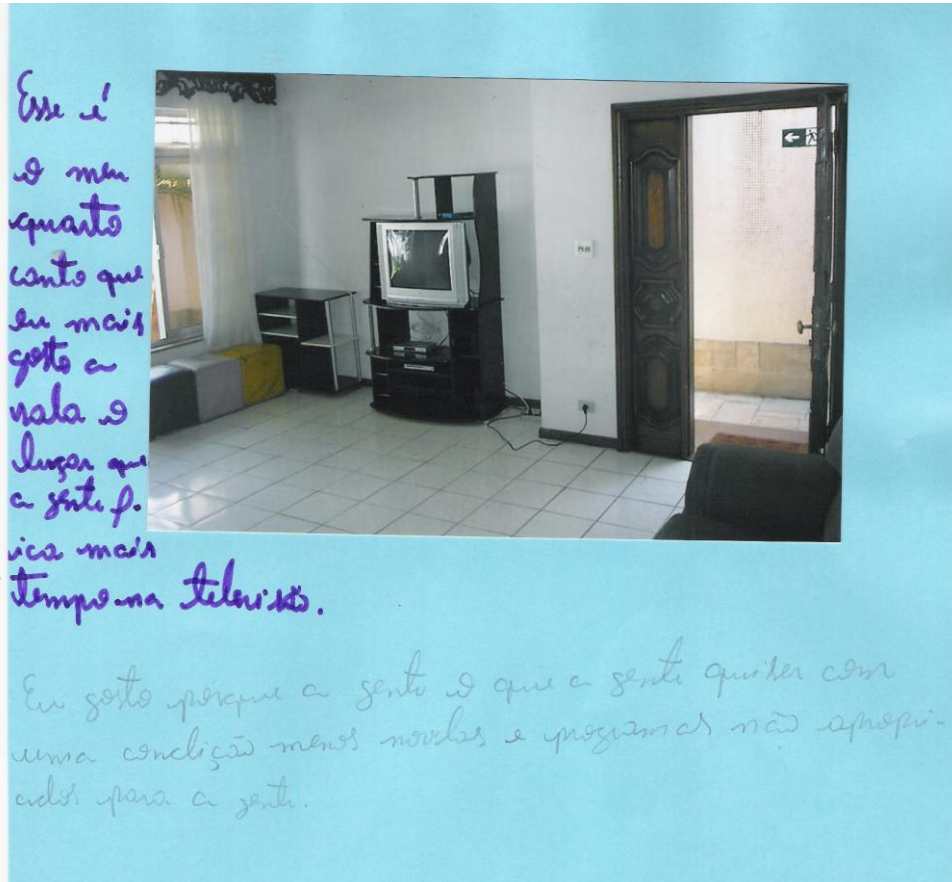 Esse é
o meu
quarto
canto que
eu mais
gosto a
sala o
lugar que
a gente f.
ica mais
tempo na televisão.
Eu gosto porque a gente o que a gente quiser com
uma condição menos novelas e programas não apropri-
ados para a gente.